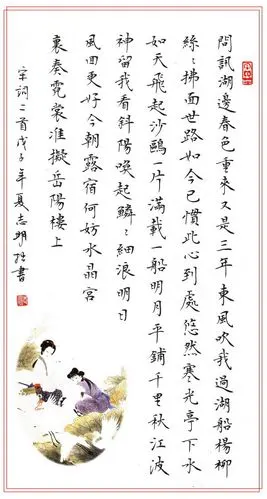 問訊湖邊春色重來又是三年東風吹我過湖船楊柳
絲〻拂面世路如今已慣此心到處悠然寒光亭下水
如天飛起沙鷗一片滿載一船明月平鋪千里秋江波
神留我看斜陽喚起鱗〻細浪明日
風回更好今朝露宿何妨水晶宮
裏奏霓裳准擬岳陽樓上
宋詞二首戊子年夏志明拙書